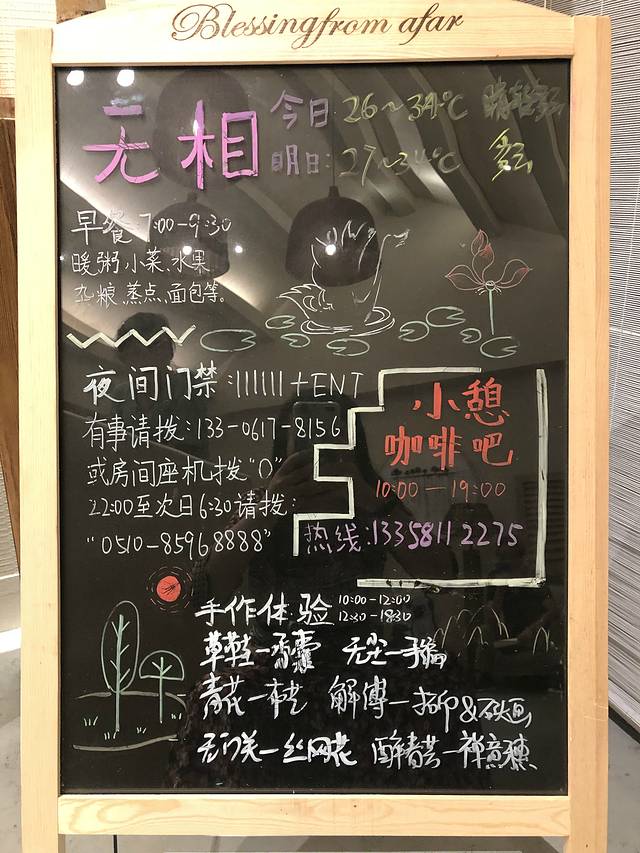 Blessing from afar
无相
今日: 26~34℃
明日: 27~34℃ 多云
早餐: 7:00-9:30
暖粥、小菜、水果
杂粮、蒸点、面包等。
夜间门禁: 111111+ENT
有事请拨: 133-0617-8156
或房间座机拨“0”
22:00至次日6:30请拨:
“0510-85968888”
小憩
咖啡吧
10:00—19:00
热线: 13358112275
手作体验 10:00-12:00
12:30-18:30
草鞋—香囊 无尘—手编
青花— 解缚—
无门关—丝网花 醉春芸—禅意穗